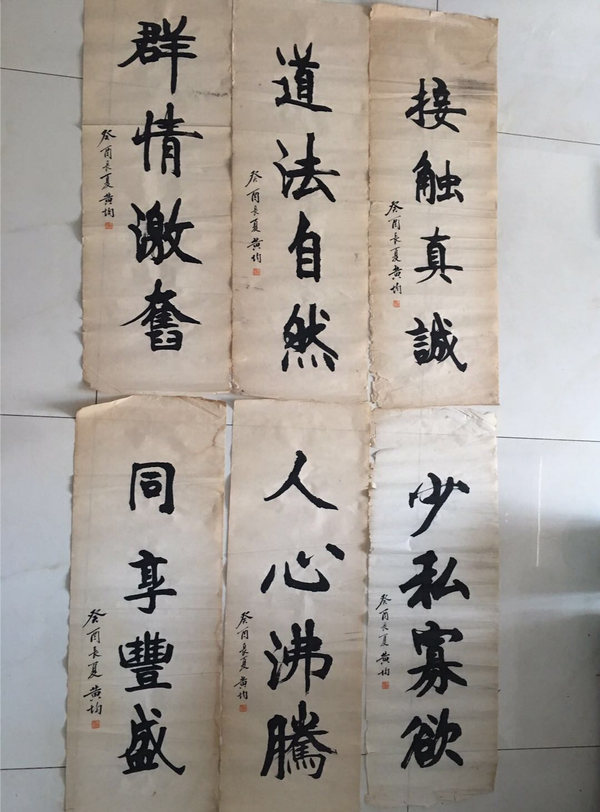 接触真誠
癸酉长夏黄均
道法自然
癸酉长夏黄均
群情激奮
癸酉长夏黄均
少私寡欲
癸酉长夏黄均
人心沸騰
癸酉长夏黄均
同享豐盛
癸酉长夏黄均